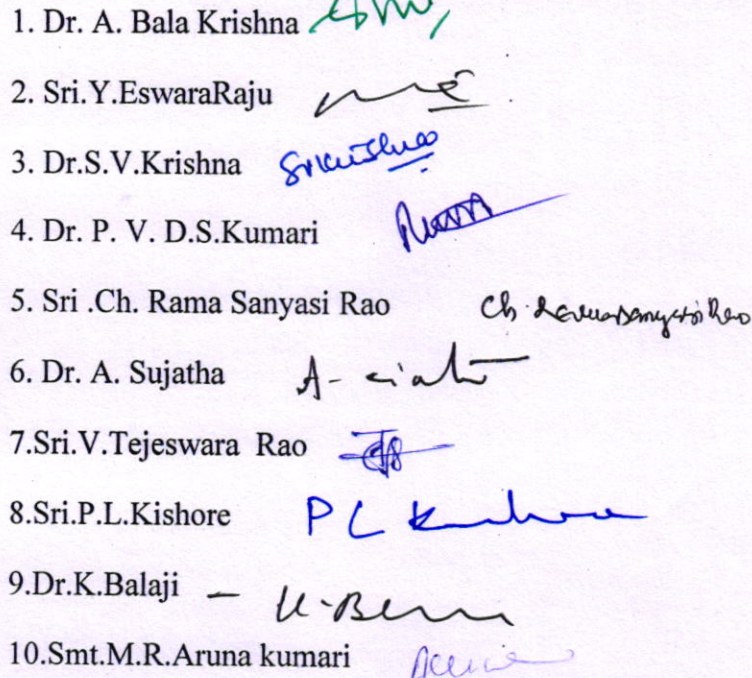 1. Dr. A. Bala Krishna
2. Sri.Y.EswaraRaju
3. Dr.S.V.Krishna Srikrishna
4. Dr. P. V. D.S.Kumari
5. Sri .Ch. Rama Sanyasi Rao Ch. Ramasanyasi Rao
6. Dr. A. Sujatha A-
7.Sri.V.Tejeswara Rao
8.Sri.P.L.Kishore P L Kishore
9.Dr.K.Balaji – K.
10.Smt.M.R.Aruna kumari